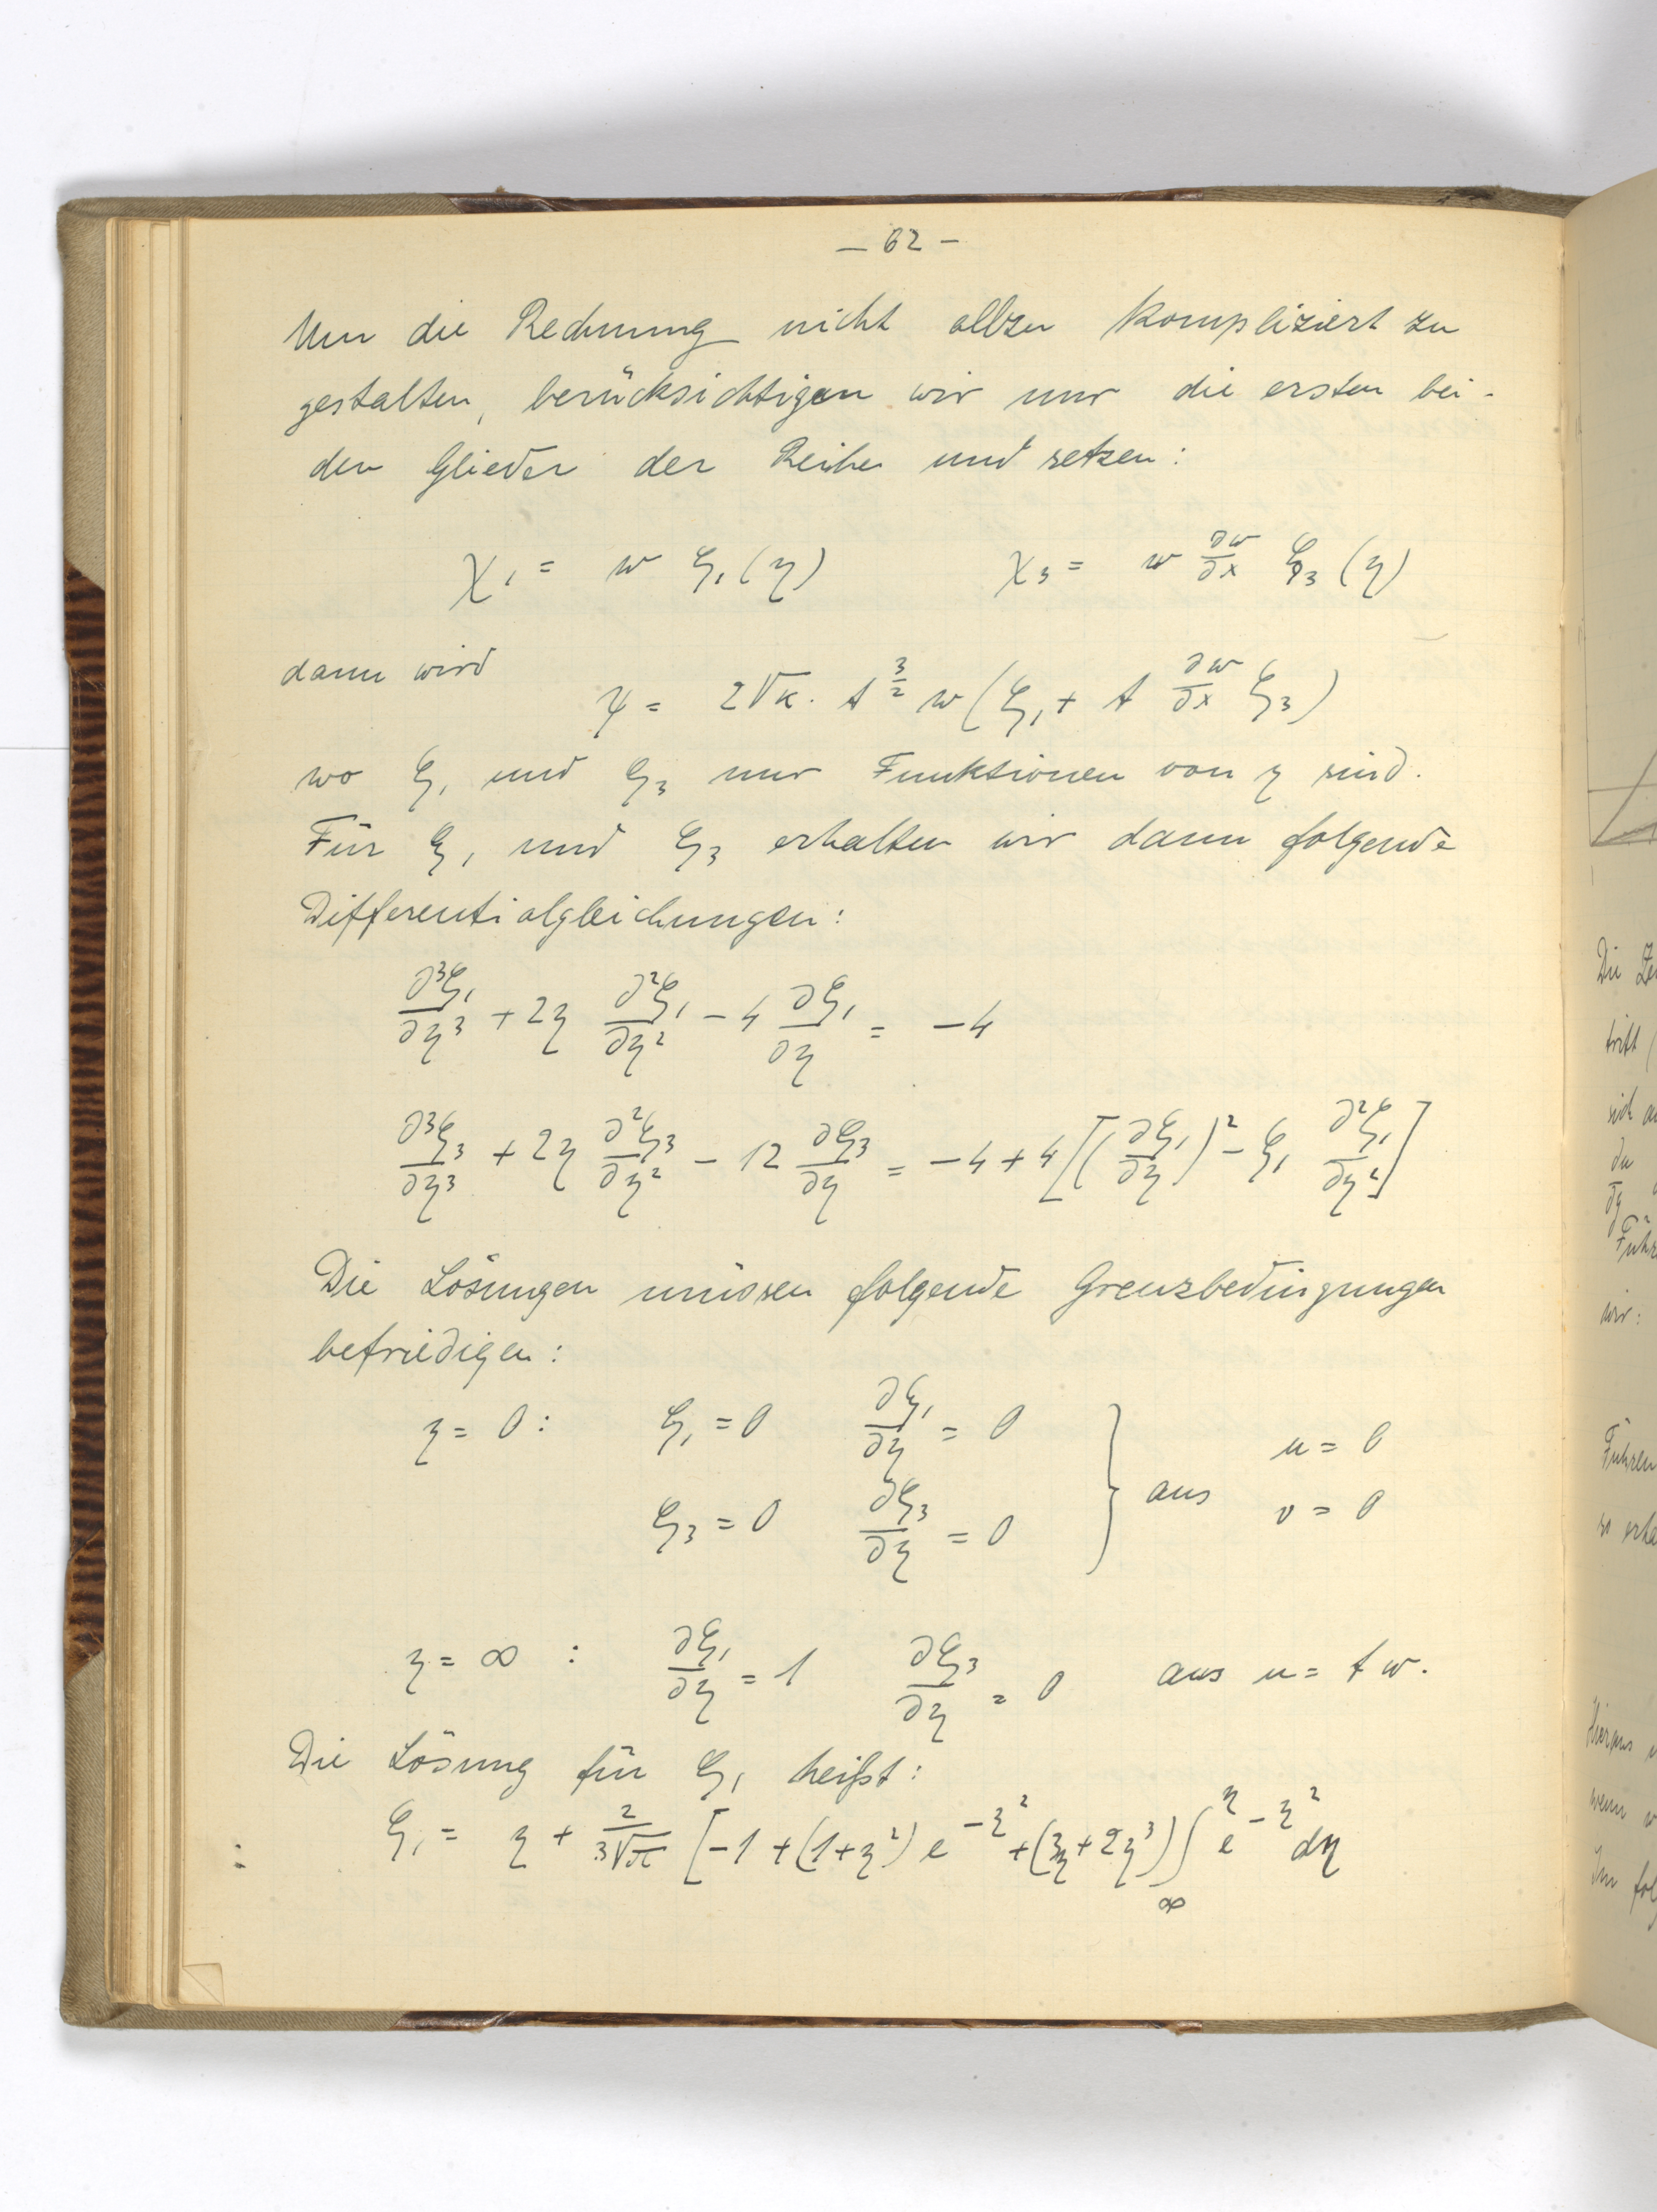 – 62 –
Um die Rechnung nicht allzu kompliziert zu
gestalten, berücksichtigen wir nur die ersten bei-
den Glieder der Reihe und setzen:
χ₁ = w ζ₁(η)   χ₃ = w ∂w/∂x ζ₃(η)
dann wird
ψ = 2√κ · t^(3/2) w (ζ₁ + t ∂w/∂x ζ₃)
wo ζ₁ und ζ₃ nur Funktionen von η sind.
Für ζ₁ und ζ₃ erhalten wir dann folgende
Differentialgleichungen:
∂³ζ₁/∂η³ + 2η ∂²ζ₁/∂η² – 4 ∂ζ₁/∂η = –4
∂³ζ₃/∂η³ + 2η ∂²ζ₃/∂η² – 12 ∂ζ₃/∂η = –4 + 4[(∂ζ₁/∂η)² – ζ₁ ∂²ζ₁/∂η²]
Die Lösungen müssen folgende Grenzbedingungen
befriedigen:
η = 0 :   ζ₁ = 0   ∂ζ₁/∂η = 0   u = 0
} aus
ζ₃ = 0   ∂ζ₃/∂η = 0   v = 0
η = ∞ :   ∂ζ₁/∂η = 1   ∂ζ₃/∂η = 0   aus u = t w.
Die Lösung für ζ₁ heißt:
ζ₁ = η + 2/(3√π) [–1 + (1+η²) e^(–η²) + (3η + 2η³) ∫_∞^η e^(–η²) dη
Die
tritt
wir:
Führen
Hieraus
wenn
Im